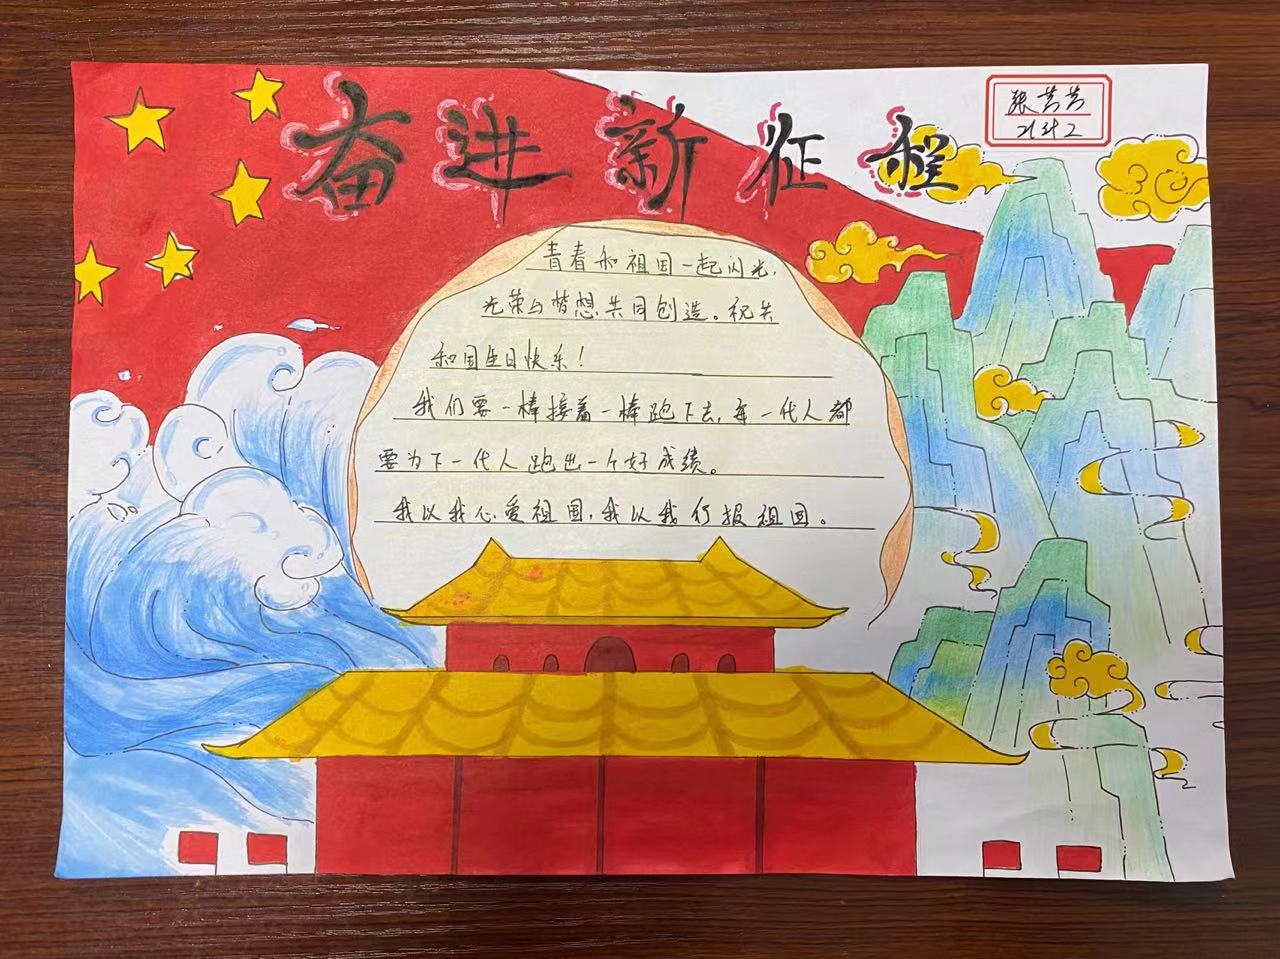 奋进新征程
张芸芸
21计2
青春和祖国一起闪光，
光荣与梦想共同创造。祝共
和国生日快乐！
我们要一棒接着一棒跑下去，每一代人都
要为下一代人跑出一个好成绩。
我以我心爱祖国，我以我行报祖国。